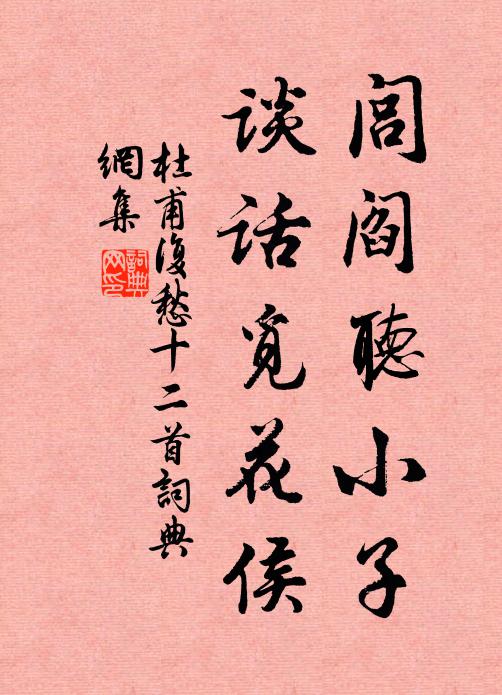 闾阎聽小子
谈话覓花侯
杜甫復愁十二首詞典
網集
詞典
网印